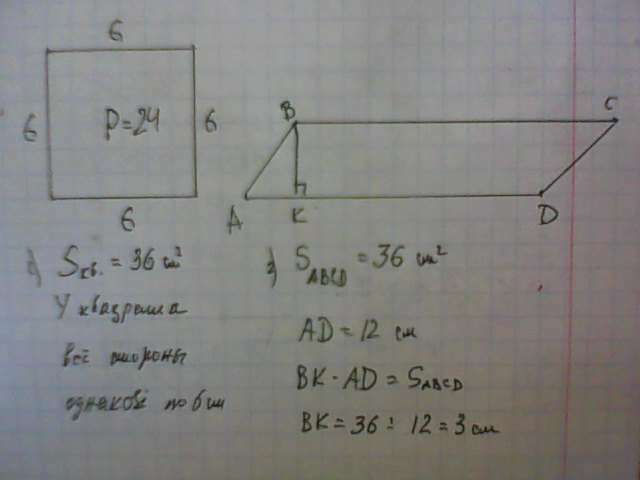 6
6
P=24
6
6
B
C
A
K
D
Sкв. = 36 см²
У квадрата
все стороны
одинаков по 6 см
S ABCD = 36 см²
AD = 12 см
BK · AD = S ABCD
BK = 36 : 12 = 3 см